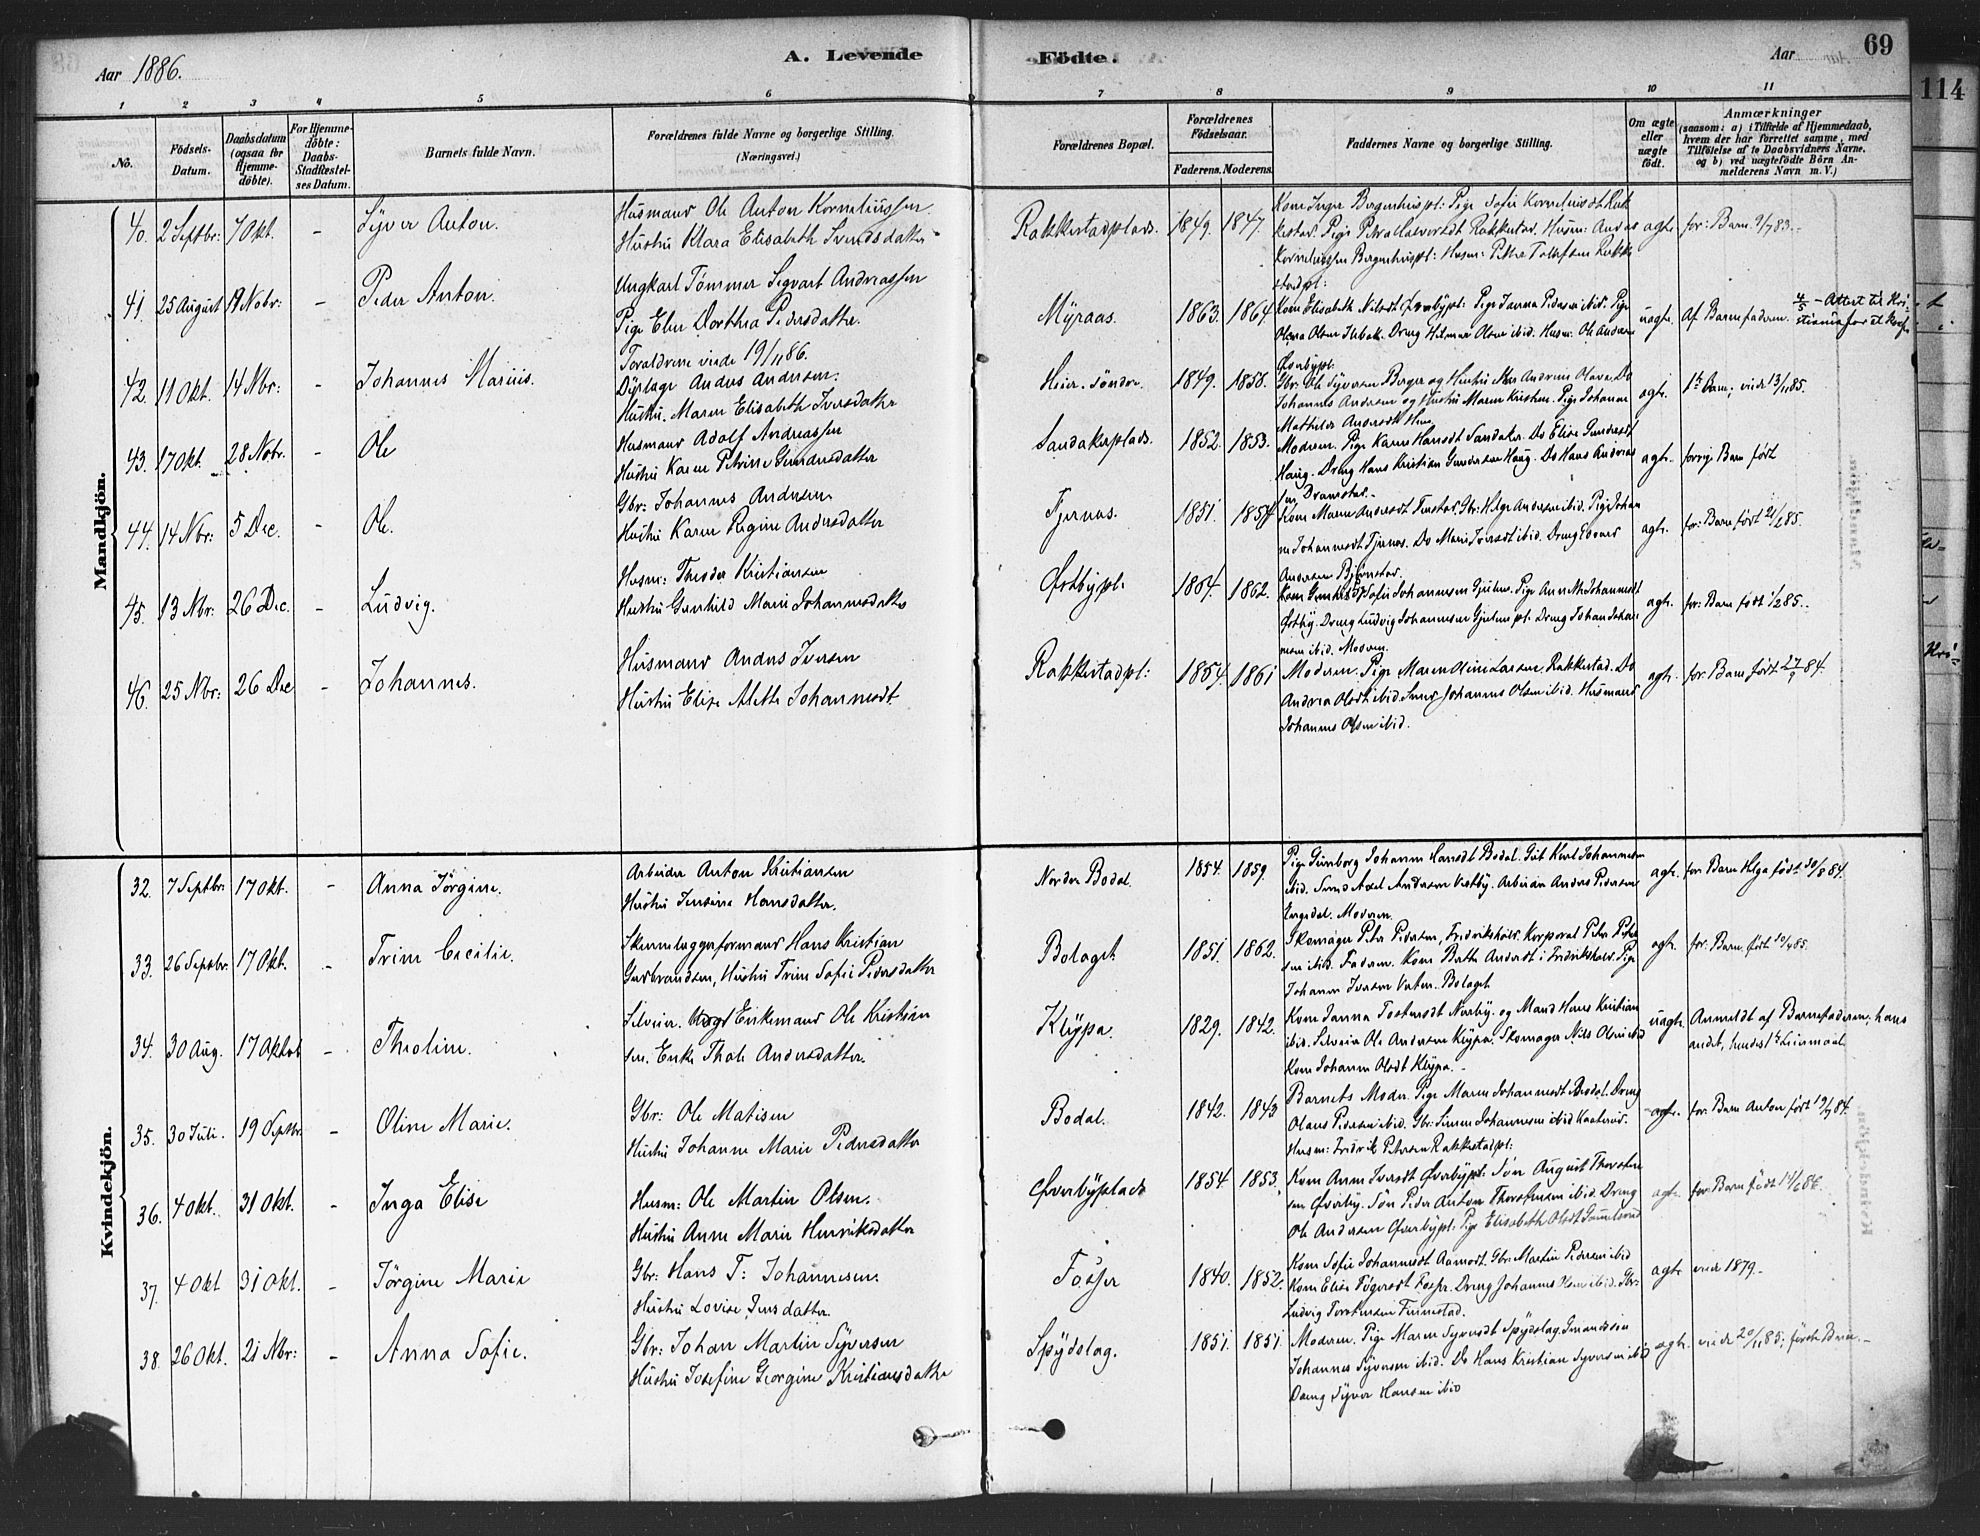 Aar 1886.
A. Levende
Födte.
Aar
69
114
1 2 3 4 5 6 7 8 9 10 11
No.
Födsels-Datum.
Daabsdatum (ogsaa for Hjemmedöbte).
For Hjemmedöbte: Daabs-Stadfæstelses Datum.
Barnets fulde Navn.
Forældrenes fulde Navne og borgerlige Stilling.
(Næringsvei.)
Forældrenes Bopæl.
Forældrenes Födselsaar.
Faderens. Moderens.
Faddernes Navne og borgerlige Stilling.
Om ægte eller uægte födt.
Anmærkninger
(saasom: a) i Tilfælde af Hjemmedaab, hvem der har forrettet samme, med Tilföielse af to Daabsvidners Navne, og b) ved uægtefödte Börn Anmelderens Navn m. V.)
Mandkjön.
40. 2 Septbr: 7 Okt. - Syver Anton.
Husmand Ole Anton Korneliussen
Hustru Klara Elisabeth Svendsdatter
Rakkestadplads. 1849. 1847.
Kone Inger Bergerhuspl: Pige Sofie Korneliusdt Rakkestad. Pige Petra Halvorsdt Rakkestad. Husm: Anders
Korneliussen Bergerhuspl: Husm: Peder Tollefsen Rakkestadpl:
ægte. for: Barn 9/7 83.
41. 25 August 19 Nobr: - Peder Anton.
Ungkarl Tømmer Sigvart Andreassen
Pige Elen Dorthea Pedersdatter.
Forældrene viede 19/11 86.
Myraas. 1863. 1864
Kone Elisabeth Nilsdt Øverbypl: Pige Janna Pedersen ibid. Pige
Olsen Isebak. Dreng Hilmar Olsen ibid. Husm. Ole Andersen
Øverbypl:
uægte. Af Barnefaderen. 4/5 - Attest til Kristiania for at konf
42. 11 Okt. 14 Nbr: - Johannes Marius.
Anders Andersen.
Hustru. Maren Elisabeth Iversdatter
Heier. söndre 1849. 1858.
Gbr. Ole Syversen Berger og Hustru
Johannes Andersen og Hustru Maren Kristine. Pige Johanne
Mathilde Andersdt Heier
ægte. 1ste Barn; viede 13/11 85.
43. 17 Okt. 28 Nobr. - Ole
Husmand Adolf Andreassen
Hustru Karen Petrine Gundersdatter
Sandakerplads. 1852. 1853.
Moderen. Pige Karen Hansdt Sandaker. Do Elise Gundersdt
Haug. Dreng Hans Kristian Gundersen Haug. Do Hans Andreassen Dramstad.
ægte. forrige Barn født
44. 14 Nbr: 5 Dec. - Ole.
Gbr: Johannes Andersen
Hustru Karen Regine Andersdatter
Tjernes. 1851. 1854
Kone Maren Andersdt Gbr: Helge Andersen ibid. Pige Johanne Johannesdt Tjernes. Do Marie Iversdt ibid. Dreng Edvard
Andersen Bjørnstad
ægte. for: Barn født 21/2 85.
45. 13 Nbr: 26 Dec. - Ludvig.
Husm: Theodor Kristiansen
Hustru Gunhild Marie Johannesdatter
Østbypl: 1864. 1862.
Sofie Johannesen Gjulem. Pige Anne M. Johannesdt
Østby. Dreng Ludvig Johannesen Gjulem pl. Dreng Johan Johannesen ibid. Moderen.
ægte. for: Barn født 1/2 85.
46. 25 Nbr: 26 Dec - Johannes.
Husmand Anders Iversen
Hustru Elise Alette Johannesdt
Rakkestadpl: 1854. 1861
Moderen. Pige Maren Oline Larsen Rakkestad. Do
Andrea Olsdt ibid. Johannes Olsen ibid. Husmand
Johannes Olsen ibid.
ægte. for: Barn født 27/9 84.
Kvindekjön.
32. 7 Septbr: 17 Okt. - Anna Jörgine.
Arbeider Anton Kristiansen
Hustru Jensine Hansdatter.
Nordre Bodal. 1854. 1859.
Pige Gunborg Johanne Hansdt Bodal. Gut Karl Johannesen
ibid. Svend Axel Andersen Vestby. Arbeider Anders Pedersen
Engsdal. Moderen.
ægte. for: Barn Helga født 30/8 84.
33. 26 Septbr. 17 Okt. - Trine Cecilie.
Skinnelæggerformand Hans Kristian
Gudbrandsen, Hustru Trine Sofie Pedersdatter
Bolaget. 1851. 1862.
Skomager Peter Pedersen, Fredrikshald. Korporal Peter Petersen ibid. Faderen. Kone Berthe Andersdt i Fredrikshald. Pige
Johanne Iversen Bolaget
ægte. for: Barn født 30/4 85.
34. 30 Aug. 17 Oktob - Theoline.
Selveier. Enkemand Ole Kristiansen. Enke Thale Andersdatter.
Kleypa. 1829. 1842.
Kone Janna Torstensdt Nordby. og Mand Hans Kristian
ibid. Selveier Ole Andersen Kleypa. Skomager Nils Olsen ibid
Kone Johanne Olsdt Kleypa.
uægte. Anmeldt af Barnefaderen; hans
andet, hendes 1ste Leiermaal.
35. 30 Juli. 19 Septbr. - Oline Marie.
Gbr: Ole Matisen
Hustru Johanne Marie Pedersdatter
Bodal. 1842. 1843
Barnets Moder. Pige Maren Johannesdt Bodal. Dreng
Olaus Pedersen ibid. Gbr: Simen Johannesen ibid
Husm: Fredrik Petersen Rakkestadpl:
ægte. for: Barn Anton født 19/7 84.
36. 4 Okt. 31 Okt. - Inga Elise
Husm: Ole Martin Olsen.
Hustru Anne Marie Henriksdatter
Øverbyplads 1854 1853.
Kone Anne Iversdt Øverbypl: Søn August Thorstensen Øverby. Søn Peder Anton Thorstensen ibid. Dreng
Ole Andersen Øverbypl: Pige Elisabeth Olsdt
ægte. for: Barn født 14/2 86.
37. 4 Okt 31 Okt. - Jörgine Marie
Gbr: Hans T: Johannesen.
Hustru Lovise Jensdatter.
Fosser 1840. 1852.
Kone Sofie Johannesdt Aamodt. Gbr. Martin Pedersen ibid
Kone Elise Fosser. Dreng Johannes ibid. Gbr:
Ludvig Torstensen Finnestad.
ægte. viede 1879.
38. 26 Okt. 21 Nbr: - Anna Sofie.
Gbr: Johan Martin Syversen
Hustru Josefine Georgine Kristiansdatter
Spydslag. 1851. 1851.
Moderen. Pige Maren Syversdt Spydslag.
Johannes Syversen ibid. Do Hans Kristian Syversen ibid
Dreng Syver Hansen ibid
ægte. viede 20/11 85; første Barn.